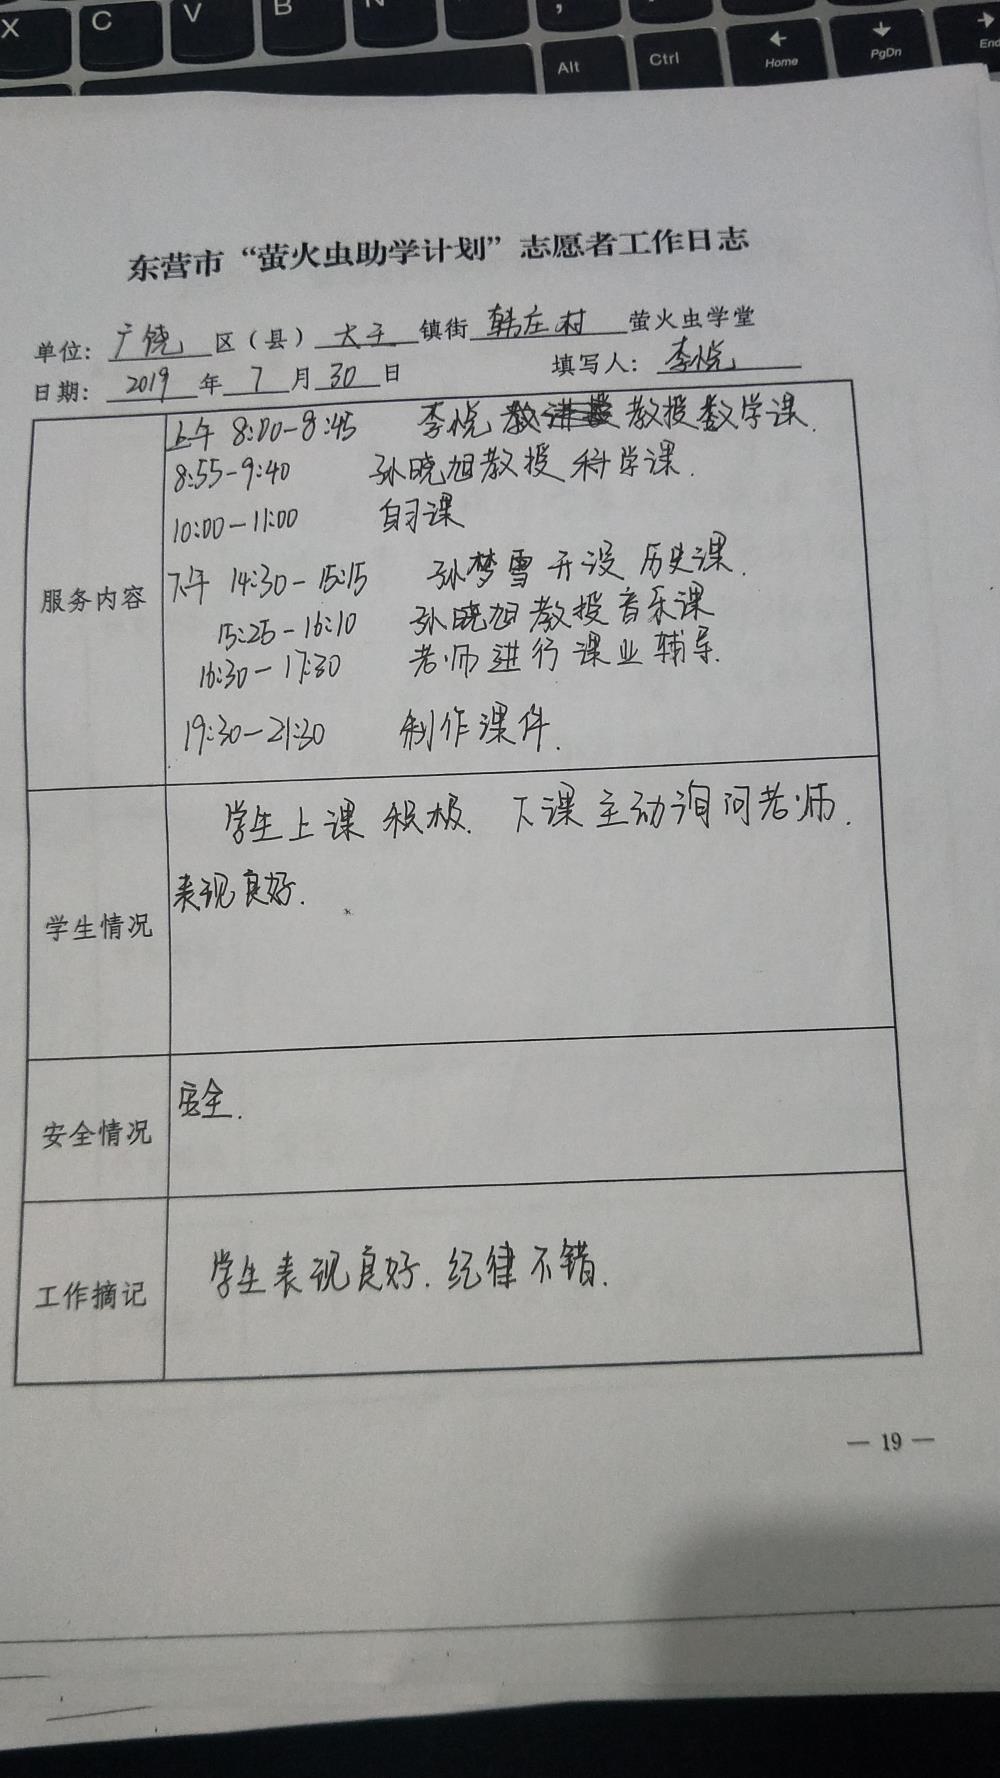 X C V B N , Alt Ctrl Home PgDn End
东营市“萤火虫助学计划”志愿者工作日志
单位：广饶区（县）大王镇街韩庄村萤火虫学堂
日期：2019年7月30日 填写人：李悦
服务内容
上午 8:00-8:45 李悦 教授数学课.
8:55-9:40 孙晓旭教授科学课.
10:00-11:00 自习课
下午 14:30-15:15 孙梦雪开设历史课.
15:25-16:10 孙晓旭教授音乐课
16:30-17:30 老师进行课业辅导.
19:30-21:30 制作课件.
学生情况
学生上课积极.下课主动询问老师.
表现良好.
安全情况
安全.
工作摘记
学生表现良好.纪律不错.
— 19 —